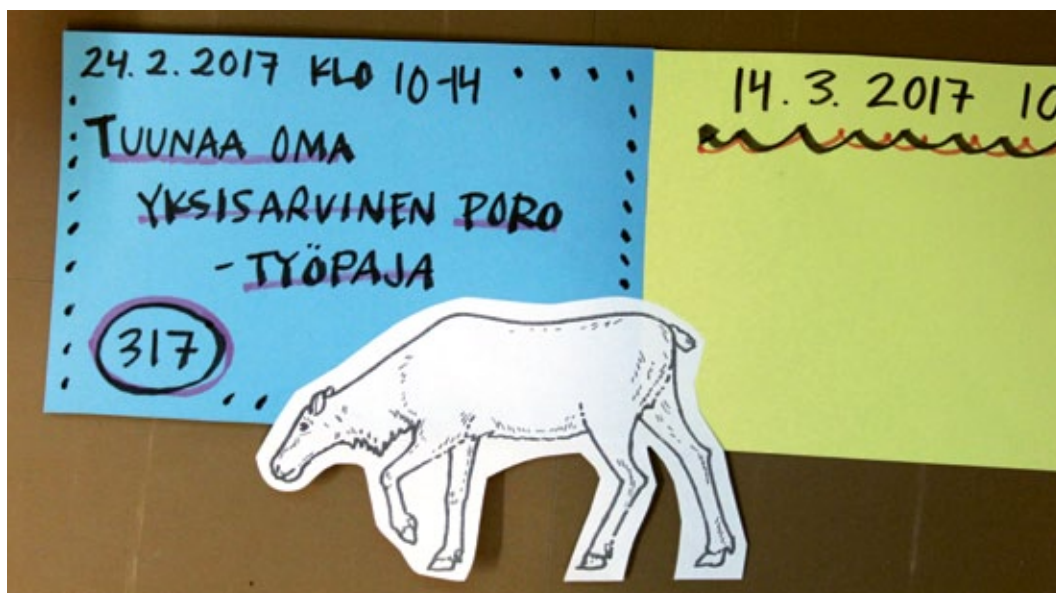 24.2.2017 KLO 10-14
TUUNAA OMA
YKSISARVINEN PORO
-TYÖPAJA
317
14.3.2017 10